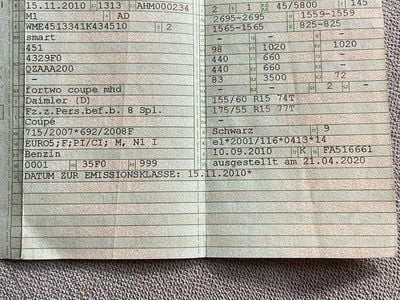 15.11.2010 1313 AHM000234
M1 AD
WME4513341K434510 2
smart
451
4329F0
QZAAA200
-
fortwo coupe mhd
Daimler (D)
Fz.z.Pers.bef.b. 8 Spl.
Coupé
715/2007*692/2008F
EURO5;F;PI/CI; M, N1 I
Benzin
0001 35F0 999
DATUM ZUR EMISSIONSKLASSE: 15.11.2010*
2 1 45/5800 145
2695-2695 1559-1559
1565-1565 825-825
- - - -
98 1020 1020
440 660 -
440 660 -
83 3500 72
- - 2 -
155/60 R15 74T
175/55 R15 77T
-
Schwarz 9
e1*2001/116*0413*14
10.09.2010 K FA516661
ausgestellt am 21.04.2020